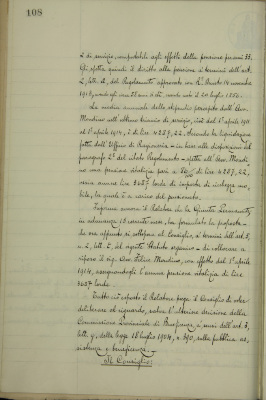 108
2 di servizio, computabili agli effetti della pensione per anni 33.
Gli spetta quindi il diritto alla pensione ai termini dell'art.
2, lett. a, del Regolamento approvato con R. Decreto 14 novembre
1912,
La media annuale dello stipendio percepito dall'Avv.
Mondino nell'ultimo triennio di servizio, cioè dal 1° aprile 1911
al 1° aprile 1914, è di lire 4287,22. Secondo la liquidazione
fatta dall'Ufficio di Ragioneria - in base alle disposizioni del
paragrafo 2° del citato Regolamento - spetta all'Avv. Mondi-
no una pensione vitalizia pari a di lire 4287,22,
ossia annue lire 3427 lorde di imposta di ricchezza mo-
bile, la quale è a carico del pensionato.
Informa ancora il Relatore che la Giunta Permanente
in adunanza 15 corrente mese, ha formulato la proposta -
da ora appunto si sottopone al Consiglio, ai termini dell'art. 5,
n. 2, lett. C, del vigente Statuto organico - di collocare a
riposo il sig. Avv. Felice Mondino, con effetto dal 1° aprile
1914, assegnandogli l'annua pensione vitalizia di lire
3427 lorde.
Tutto ciò esposto il Relatore prega il Consiglio di voler
deliberare al riguardo, salva l'ulteriore decisione della
Commissione Provinciale di Beneficenza a sensi dell'art. 3,
lett. g, della legge 18 luglio 1904, n. 390, sulla pubblica as-
sistenza e beneficenza.
Il Consiglio: